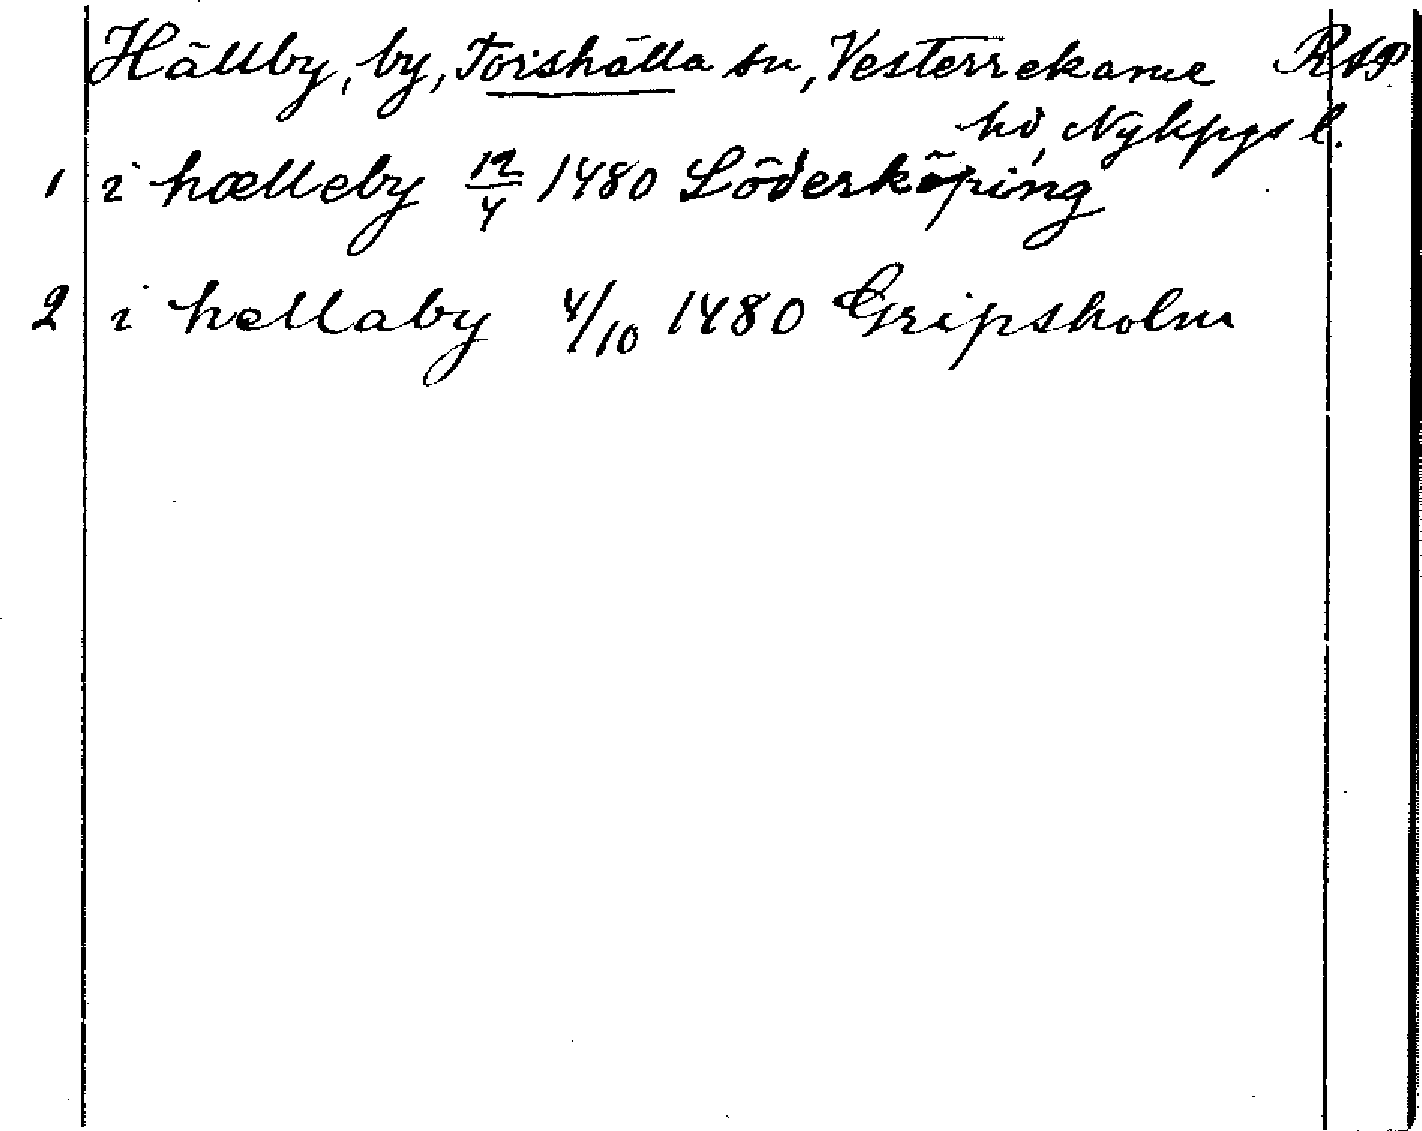 Hällby, by, Torshälla sn, Vesterrekarne RAP
hd, Nykpgs l.
1 i hælleby 12/4 1480 Söderköping
2 i hællaby 4/10 1480 Gripsholm